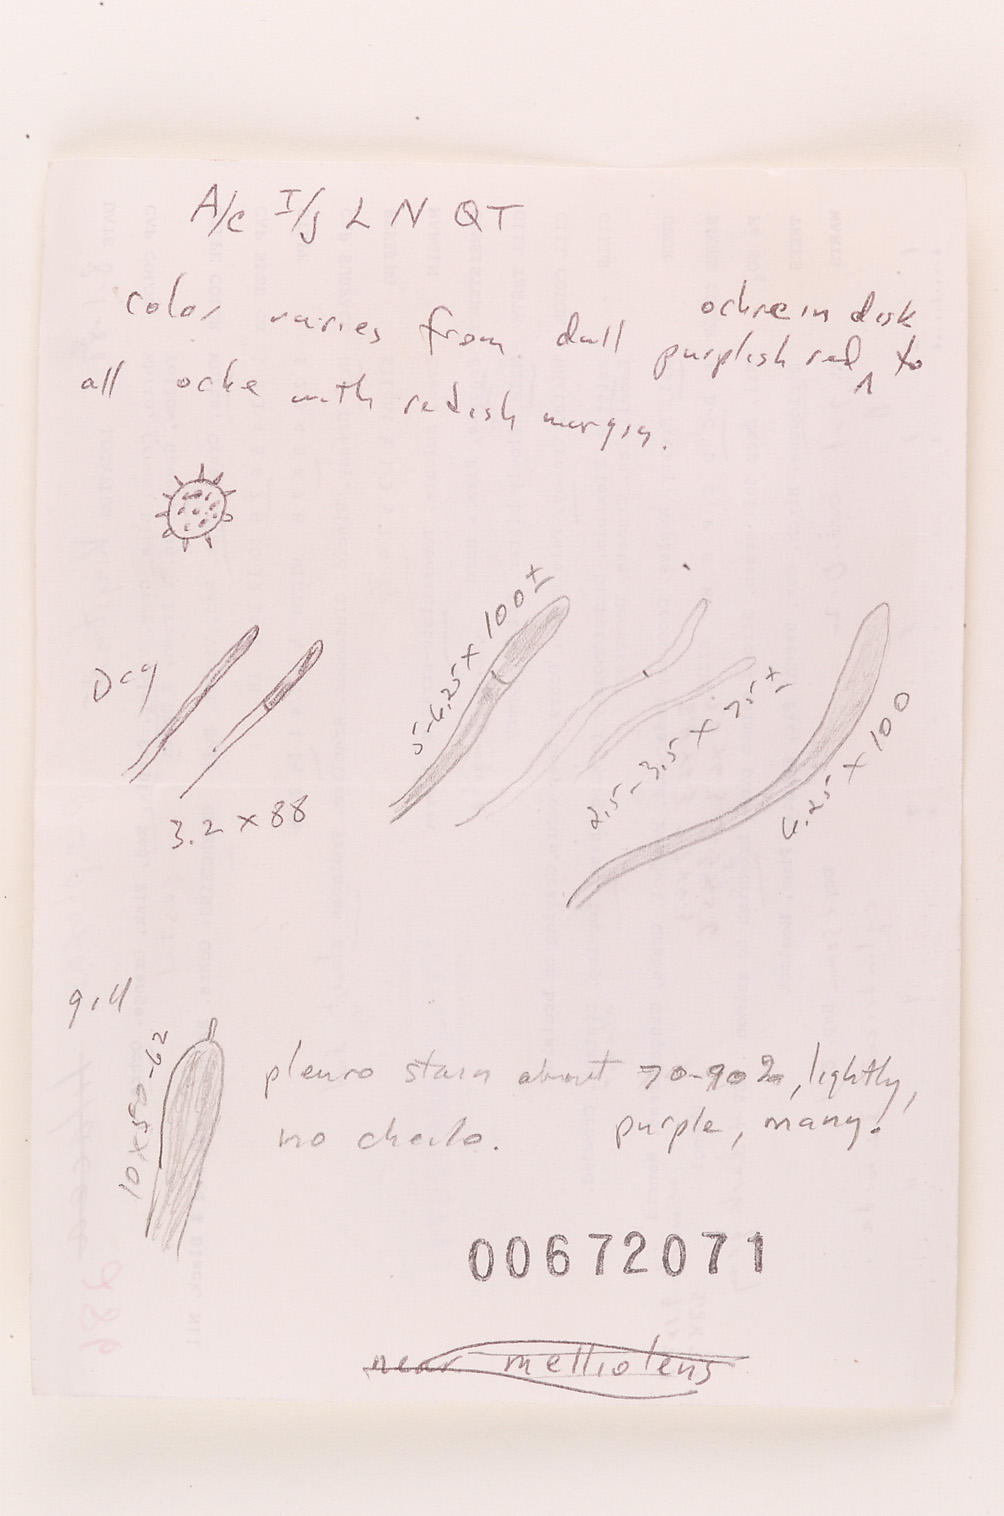 A/c I/J L N QT
color varies from dull purplish red ^ ochre in disk to
all ocke with redish margin.
Dcq
3.2 x 88
5-6.25 x 100±
2.5-3.5 x 75±
6.25 x 100
gill
10 x 50-62
pleuro stain about 70-90%, lightly,
no cheilo. purple, many!
00672071
near melliolens